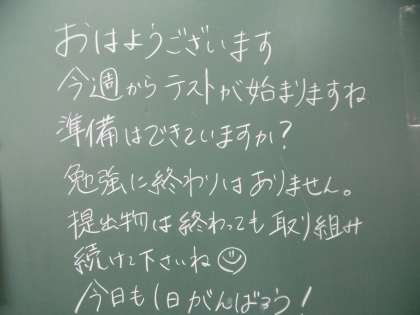 おはようございます
今週からテストが始まりますね
準備はできていますか?
勉強に終わりはありません。
提出物は終わっても取り組み
続けて下さいね☺
今日も1日がんばろう!